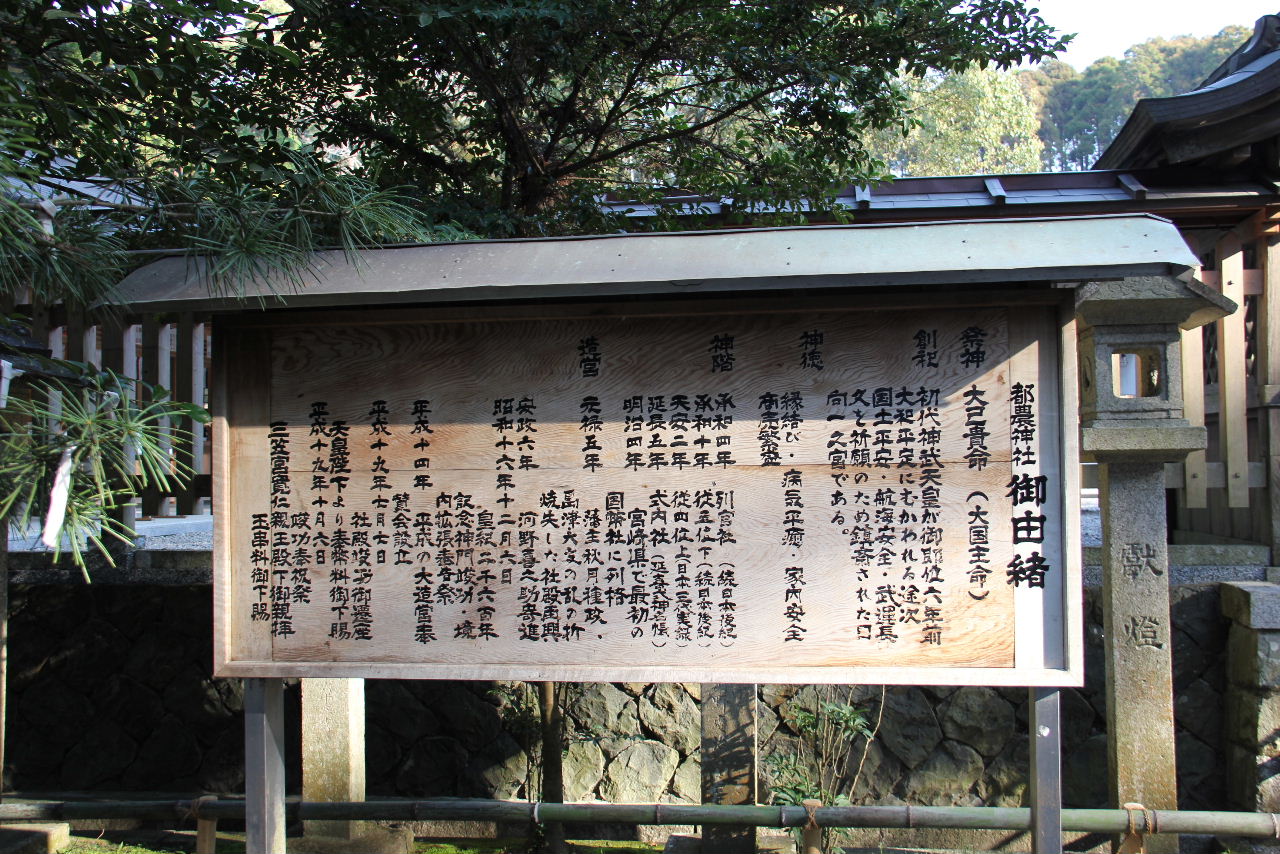 都農神社 御由緒
祭神 大己貴命(大国主命)
創祀 初代神武天皇が御即位六年前
大和平定にむかわれる途次
国土平安・航海安全・武運長
久を祈願のため鎮斎された日
向一之宮である。
神徳 縁結び・病気平癒・家内安全
商売繁盛
神階 承和四年 列官社(続日本後紀)
承和十年 従五位下(続日本後紀)
天安二年 従四位上(日本三代実録)
延長五年 式内社(延喜神名帳)
明治四年 宮崎県で最初の
国幣社に列格
造営 元禄五年 藩主秋月種政・
島津大友の乱の折
焼失した社殿再興
安政六年 河野喜之助寄進
昭和十六年十二月六日
皇紀二千六百年
記念神門竣功・境
内拡張奉告祭
平成十四年 平成の大造営奉
賛会設立
平成十九年七月七日
社殿竣功御遷座
天皇陛下より奉幣料御下賜
平成十九年十月六日
竣功奉祝祭
三笠宮寛仁親王殿下御親拝
玉串料御下賜
献燈